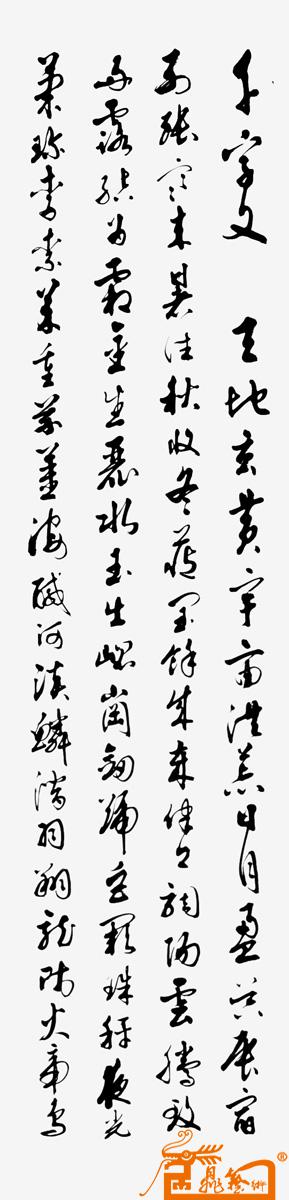 千字文 天地玄黄宇宙洪荒日月盈昃辰宿
列張寒来暑往秋收冬藏閏餘成歲律吕調陽雲騰致
雨露結为霜金生麗水玉出崑岡劍號巨闕珠稱夜光
菓珍李柰菜重芥薑海鹹河淡鱗潛羽翔龍師火帝鸟